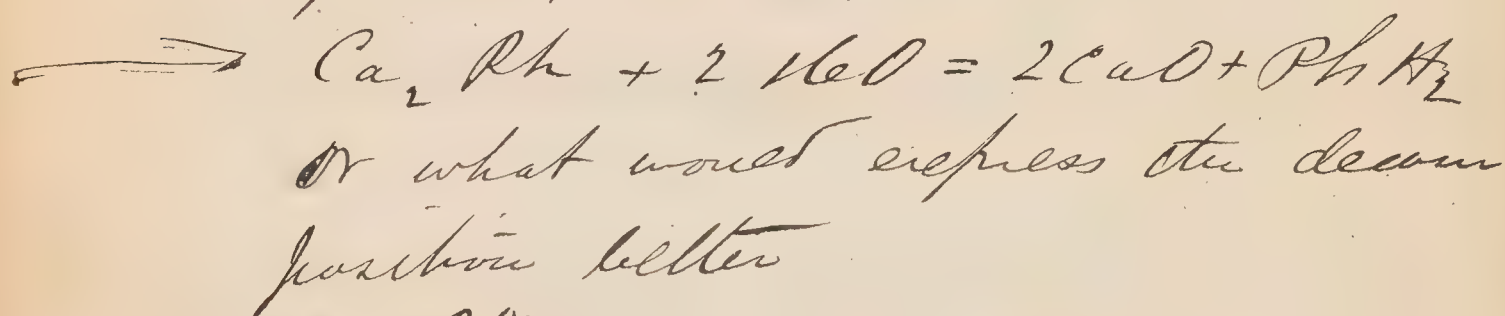 Ca₂ Ph + 2 HO = 2 CaO + Ph H₂
or what would express the decom
position better